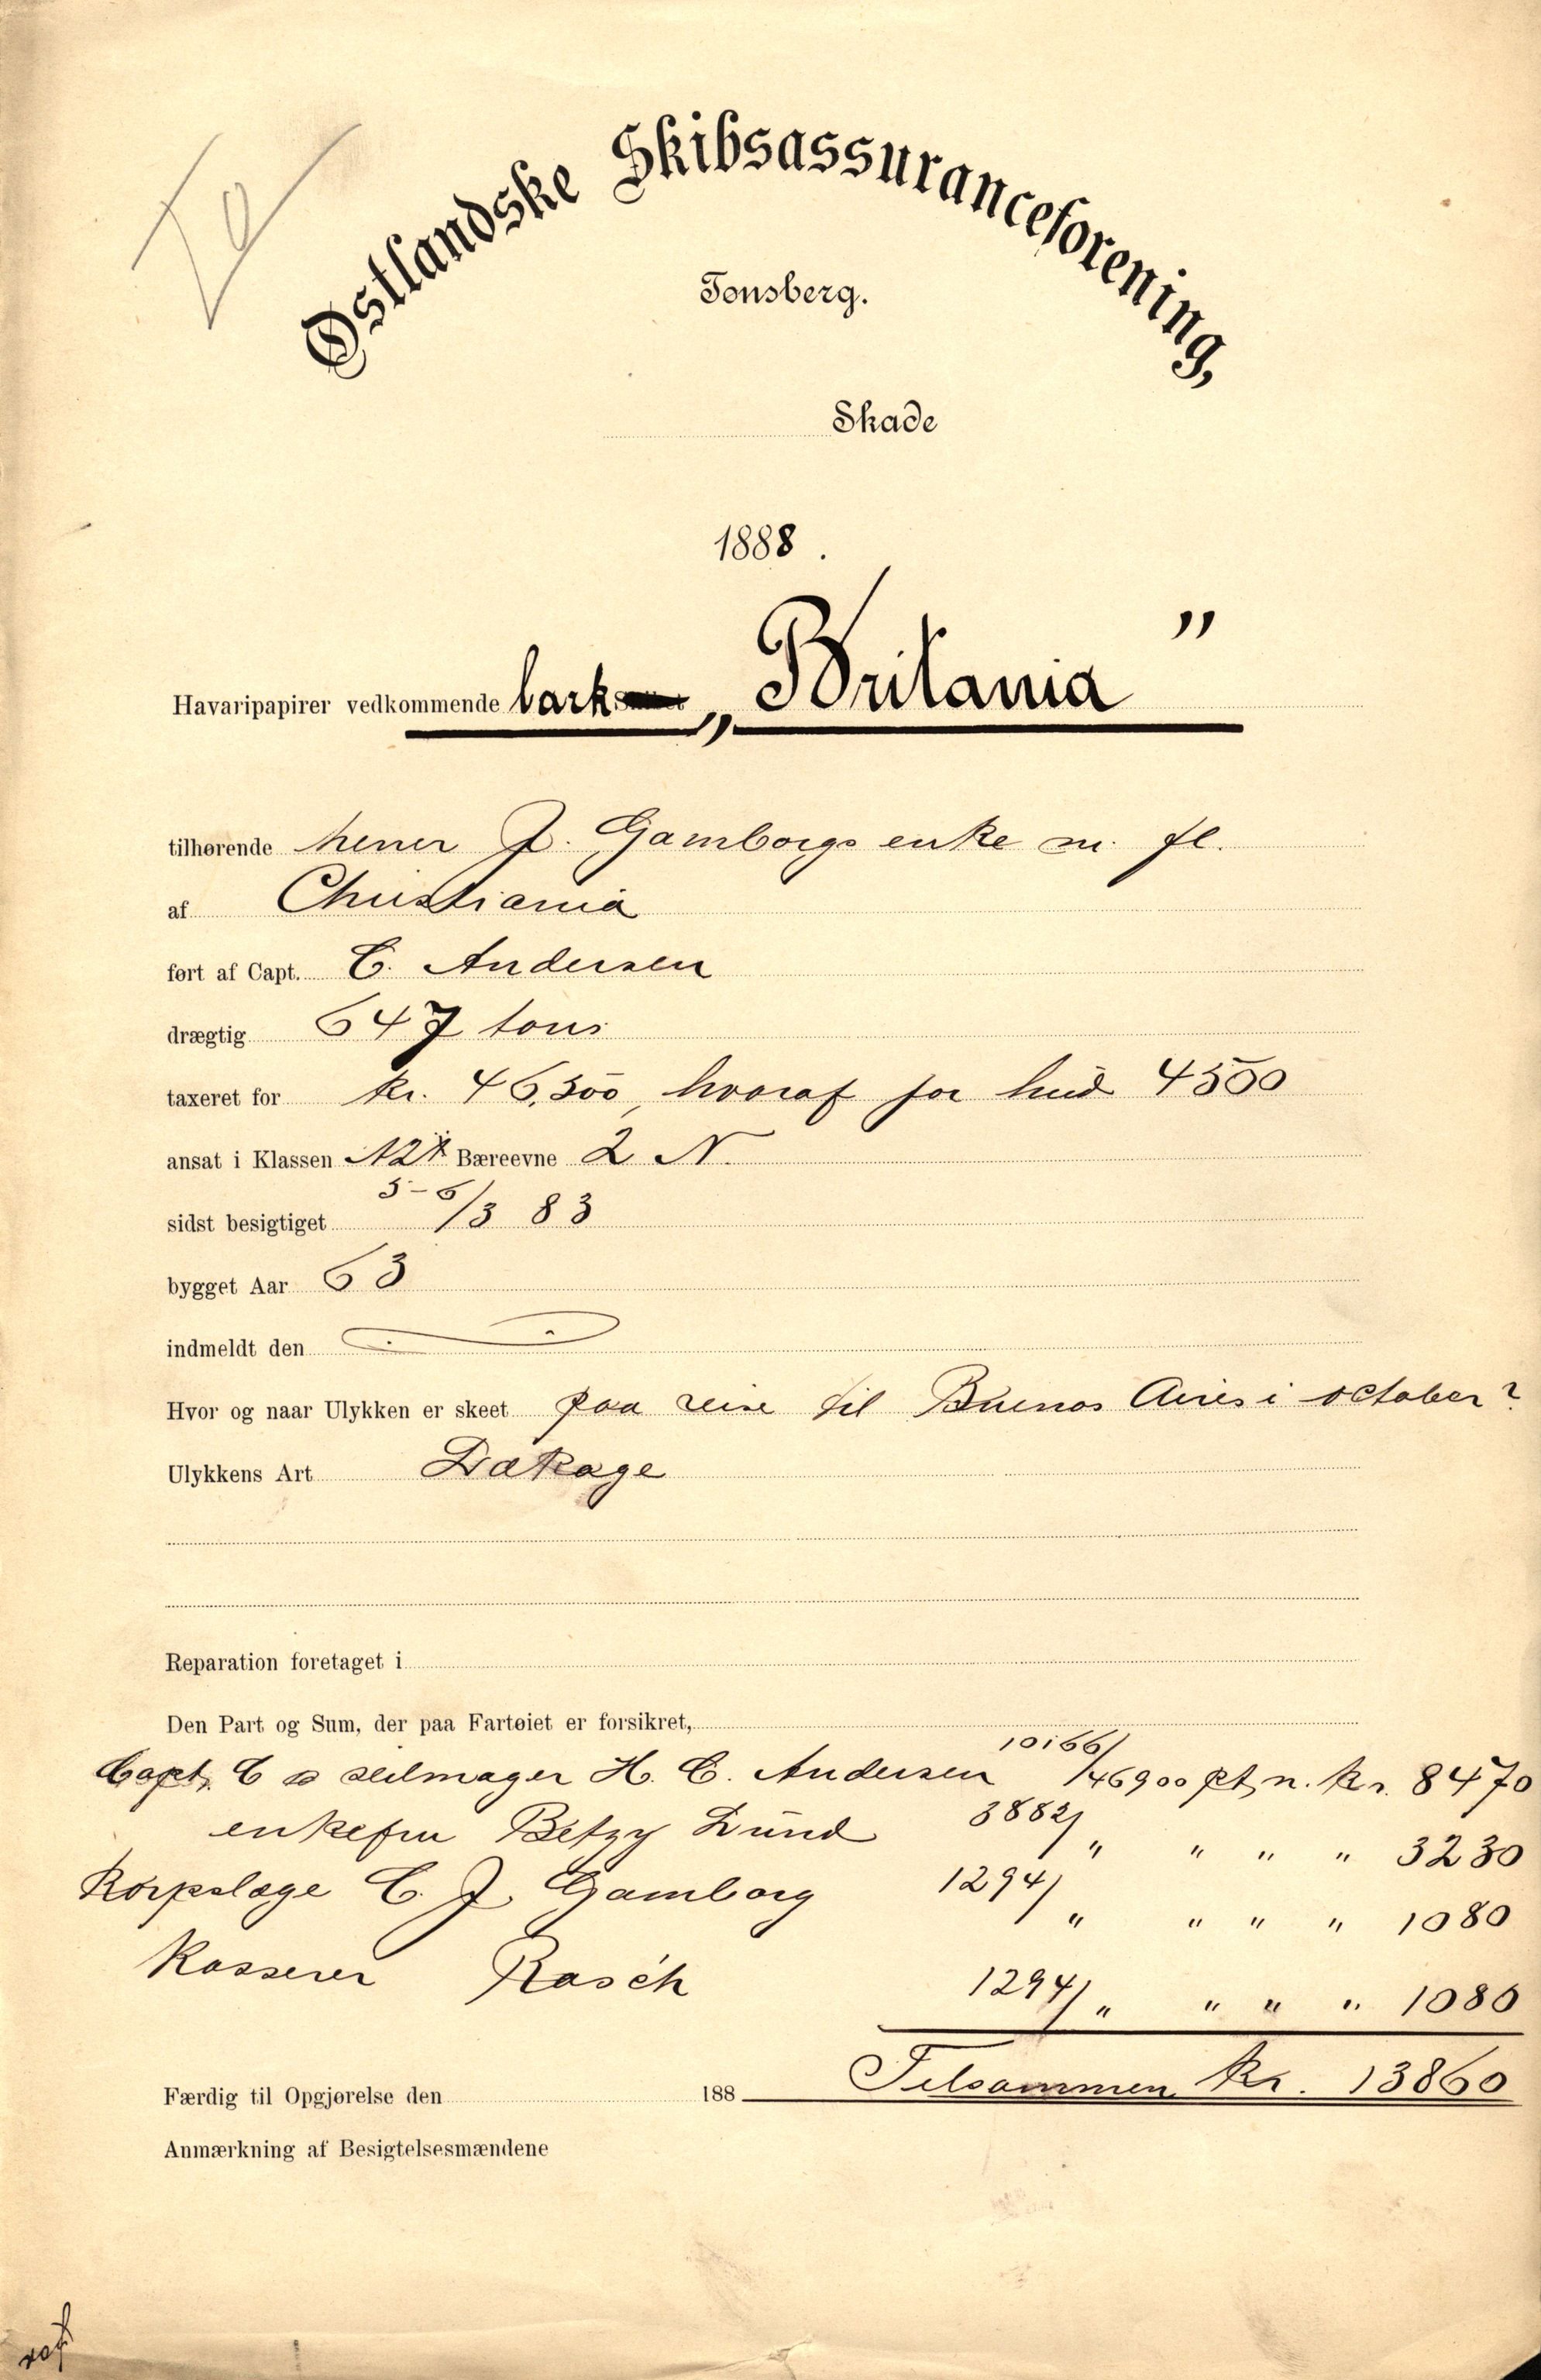 Østlandske Skibsassuranceforening,
Tønsberg.
Skade
1888.
Havaripapirer vedkommende bark „Britania”
tilhørende herrer J. Gamborgs enke m. fl.
af Christiania
ført af Capt. C. Andersen
drægtig 647 tons
taxeret for kr. 46,300, hvoraf for hud 4500
ansat i Klassen A2 Bæreevne 2 N.
sidst besigtiget 5-6/3 83
bygget Aar 63
indmeldt den
Hvor og naar Ulykken er skeet paa reise til Buenos Aires i october?
Ulykkens Art Lækage
Reparation foretaget i
Den Part og Sum, der paa Fartøiet er forsikret,
Capt. C og seilmager H. C. Andersen 10166/46900 pt, n. kr. 8470
enkefru Betzy Lund 3882/" " " " 3230
Korpslæge C. J. Gamborg 1294/" " " " 1080
Kasserer Rasch 1294/" " " " 1080
Tilsammen kr. 13860
Færdig til Opgjørelse den 188
Anmærkning af Besigtelsesmændene